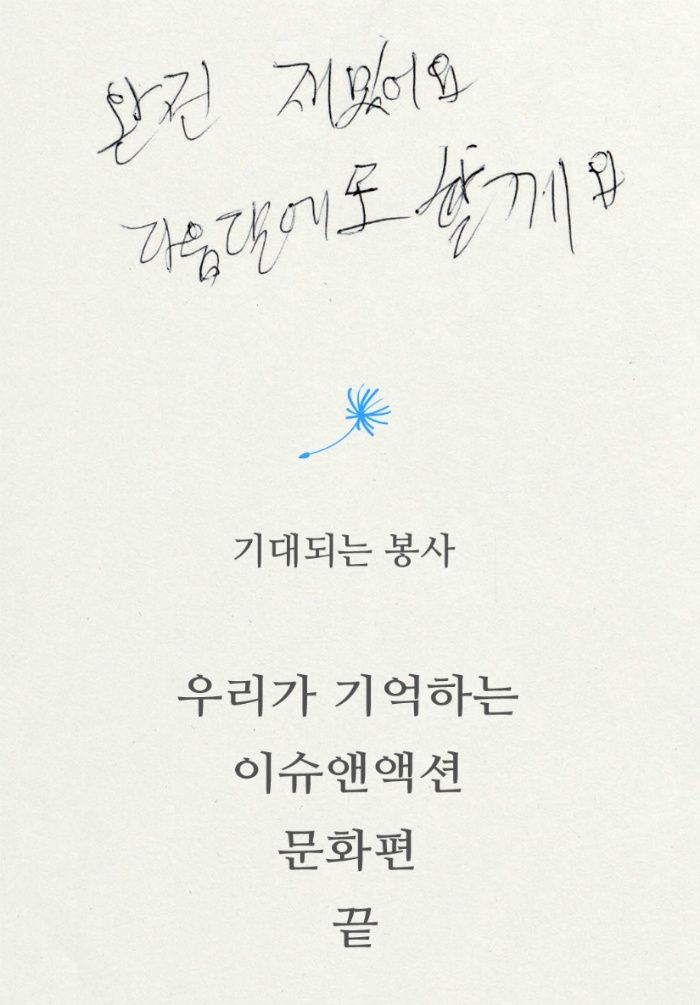 완전 재밌어요
다음달에도 할게요
기대되는 봉사
우리가 기억하는
이슈앤액션
문화편
끝